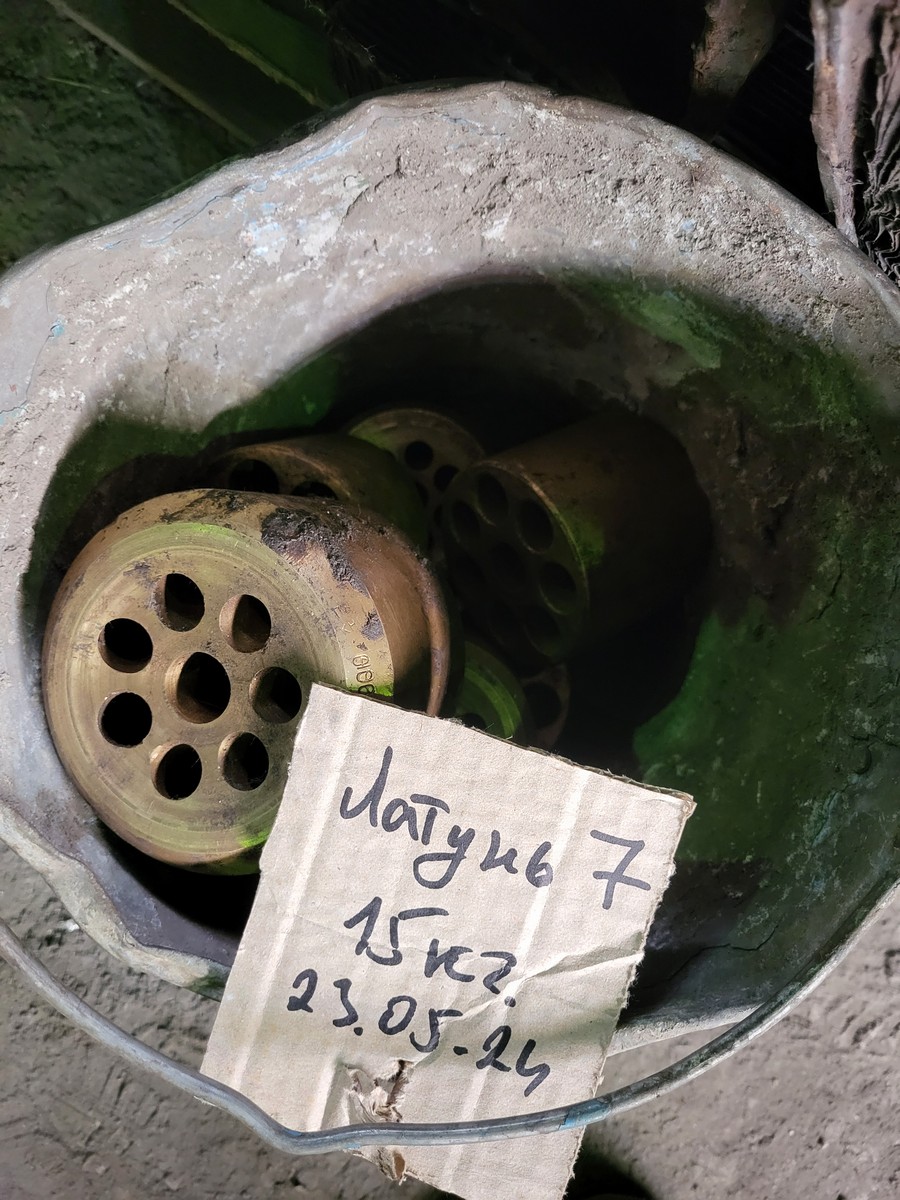 Латунь 7
15 кг.
23.05.24